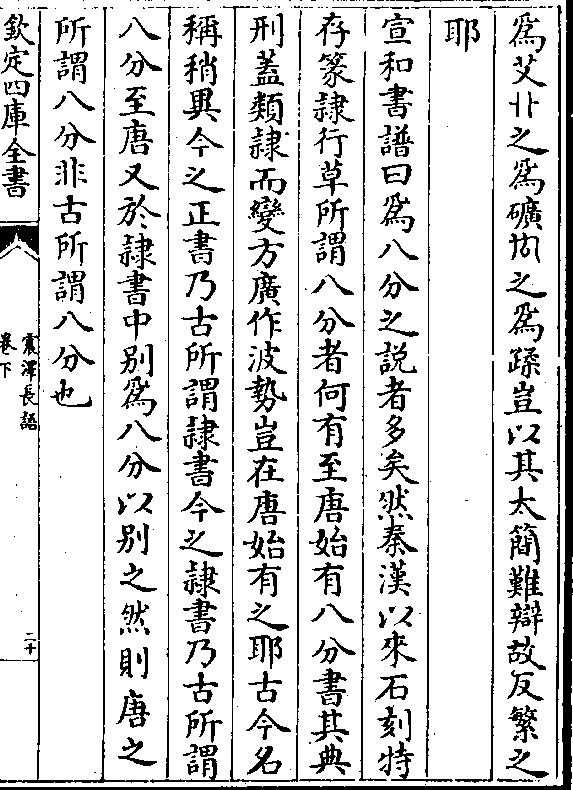 爲艾丱之爲礦㘝之爲蹂豈以其太簡難辯故反繁之
耶
宣和書譜曰爲八分之説者多矣然秦漢以來石刻特
存篆隷行草所謂八分者何有至唐始有八分書其典
刑蓋類隷而變方廣作波勢豈在唐始有之耶古今名
稱稍異今之正書乃古所謂隷書今之隷書乃古所謂
八分至唐又於隷書中别爲八分以别之然則唐之
所謂八分非古所謂八分也
欽定四庫全書
震澤長語
卷下
二十